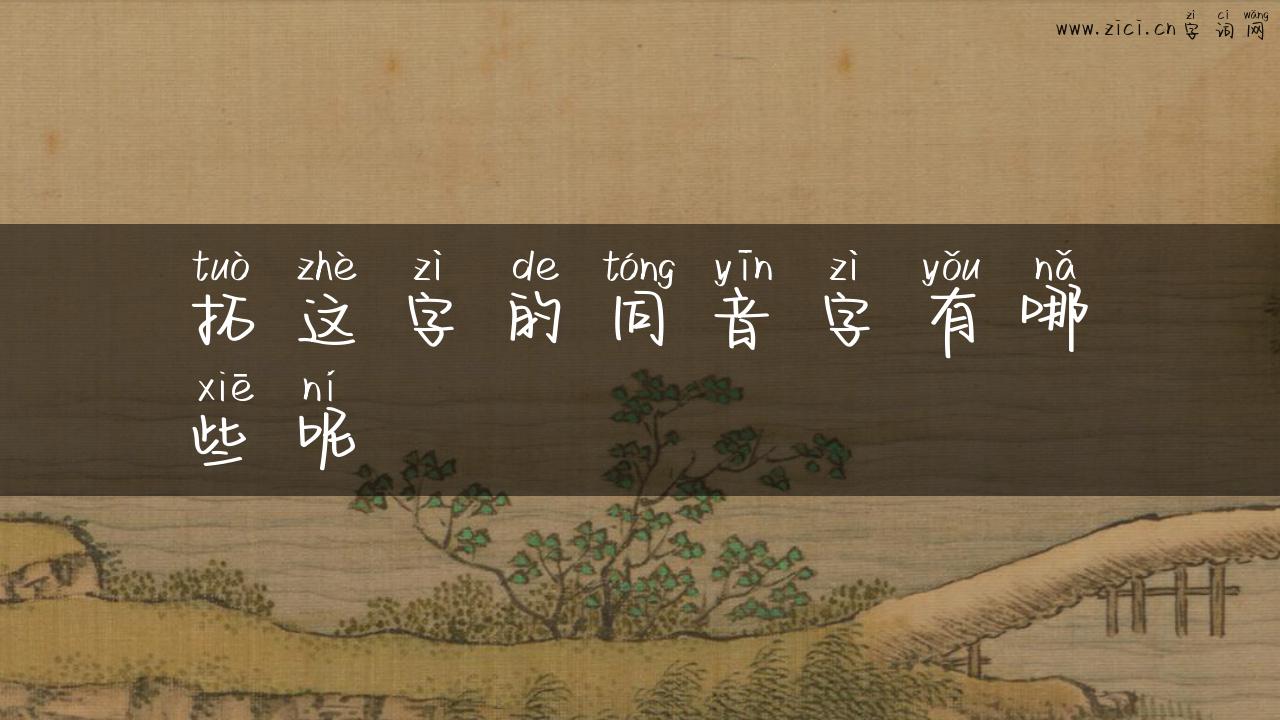 zì cí wǎng
www.zici.cn 字 词 网
tuò zhè zì de tóng yīn zì yǒu nǎ
拓 这 字 的 同 音 字 有 哪
xiē ní
些 呢